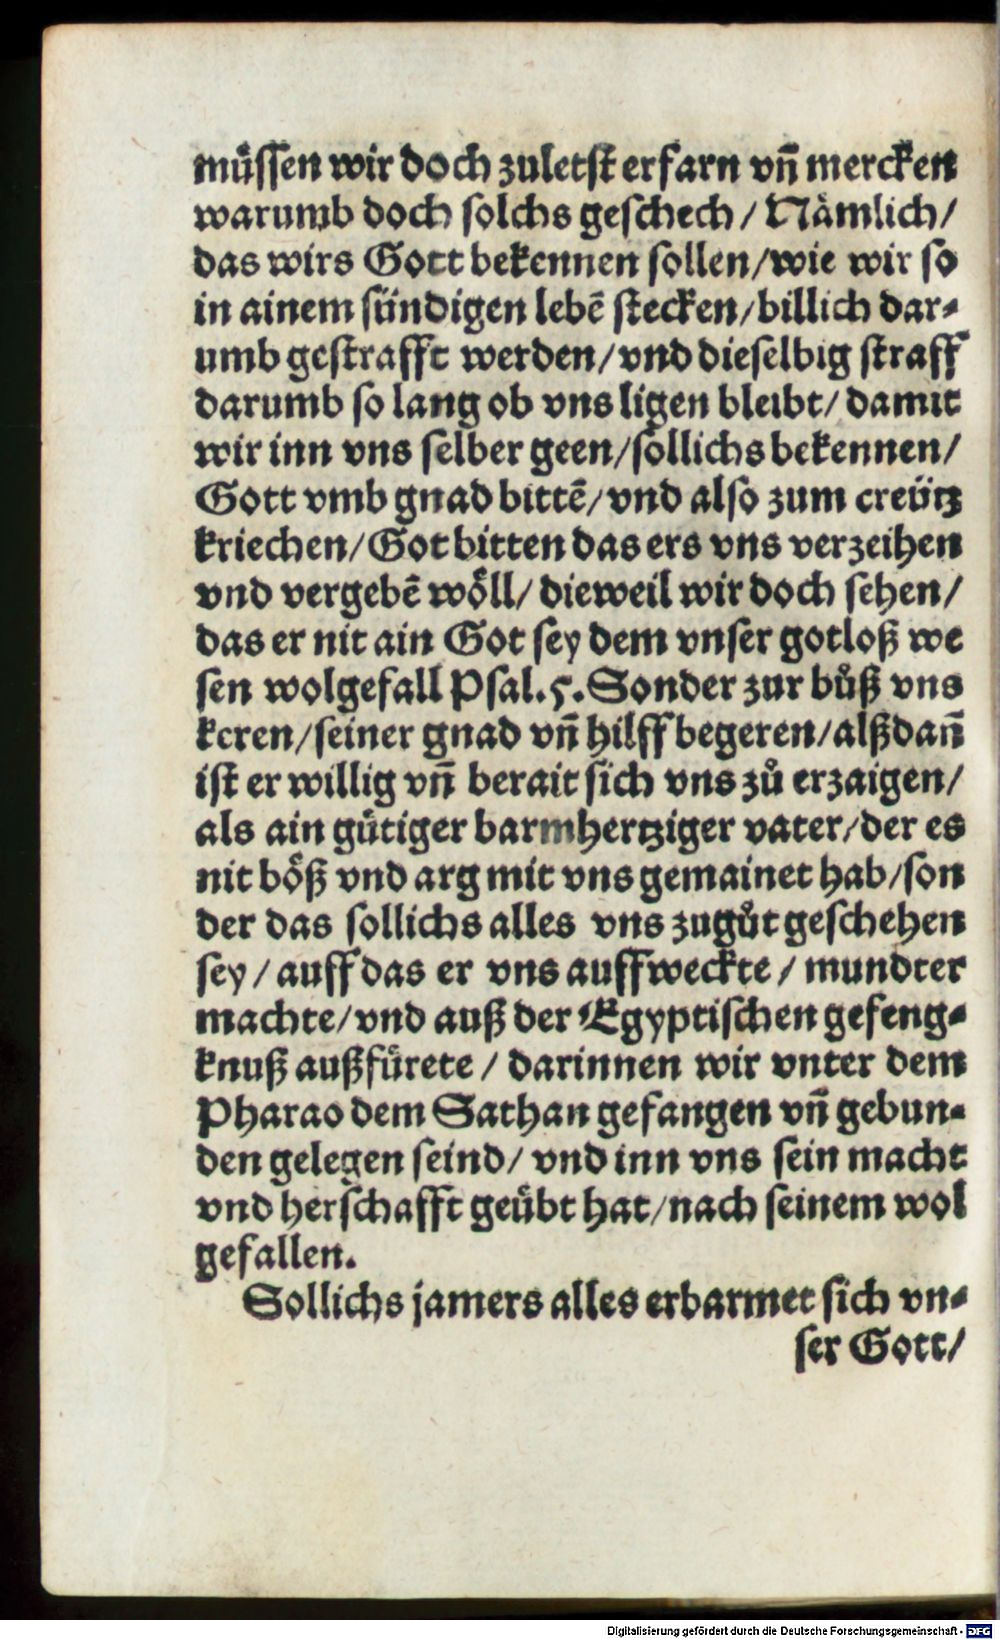 muͤssen wir doch zuletst erfarn vñ mercken
warumb doch solchs geschech / Nämlich /
das wirs Gott bekennen sollen / wie wir so
in ainem sündigen lebẽ stecken / billich dar⸗
umb gestrafft werden / vnd dieselbig straff
darumb so lang ob vns ligen bleibt / damit
wir inn vns selber geen / sollichs bekennen /
Gott vmb gnad bittẽ / vnd also zum creütz
kriechen / Got bitten das ers vns verzeihen
vnd vergebẽ woͤll / dieweil wir doch sehen /
das er nit ain Got sey dem vnser gotloß we
sen wolgefall Psal. 5. Sonder zur buͦß vns
keren / seiner gnad vñ hilff begeren / alßdañ
ist er willig vñ berait sich vns zuͦ erzaigen /
als ain guͤtiger barmhertziger vater / der es
nit boͤß vnd arg mit vns gemainet hab / son
der das sollichs alles vns zuguͦt geschehen
sey / auff das er vns auffweckte / mundter
machte / vnd auß der Egyptischen gefeng⸗
knuß außfuͤrete / darinnen wir vnter dem
Pharao dem Sathan gefangen vñ gebun⸗
den gelegen seind / vnd inn vns sein macht
vnd herschafft geuͤbt hat / nach seinem wol
gefallen.
Sollichs jamers alles erbarmet sich vn⸗
ser Gott /
Digitalisierung gefördert durch die Deutsche Forschungsgemeinschaft - DFG